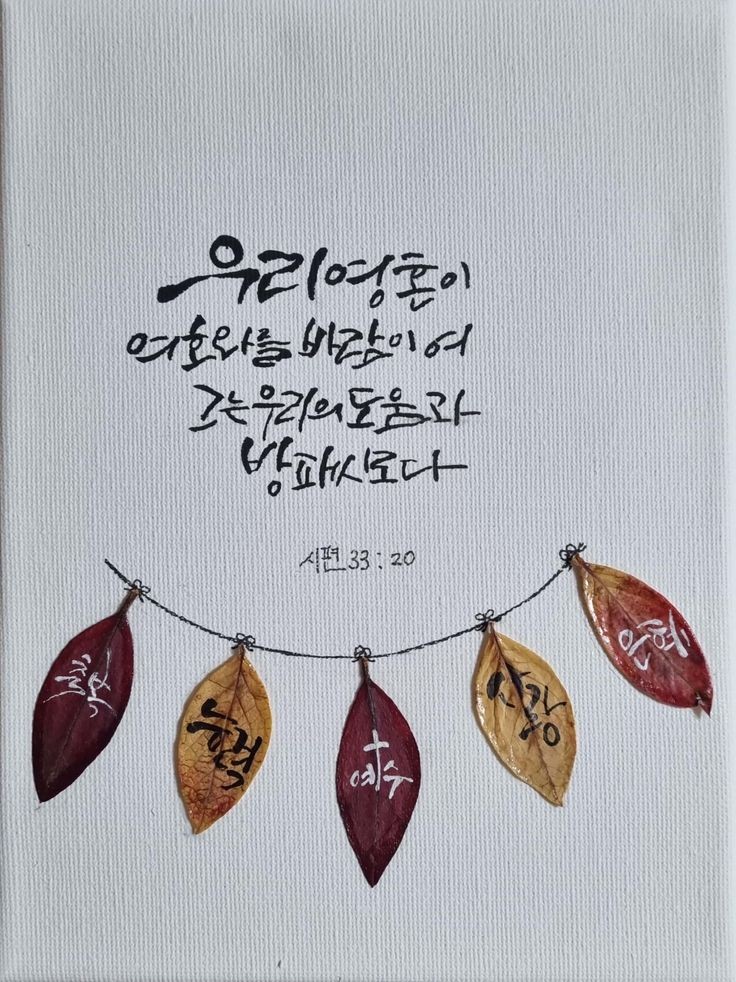 우리영혼이
여호와를 바람이여
그는우리의도움과
방패시로다
시편 33:20
축복
능력
예수
사랑
은혜